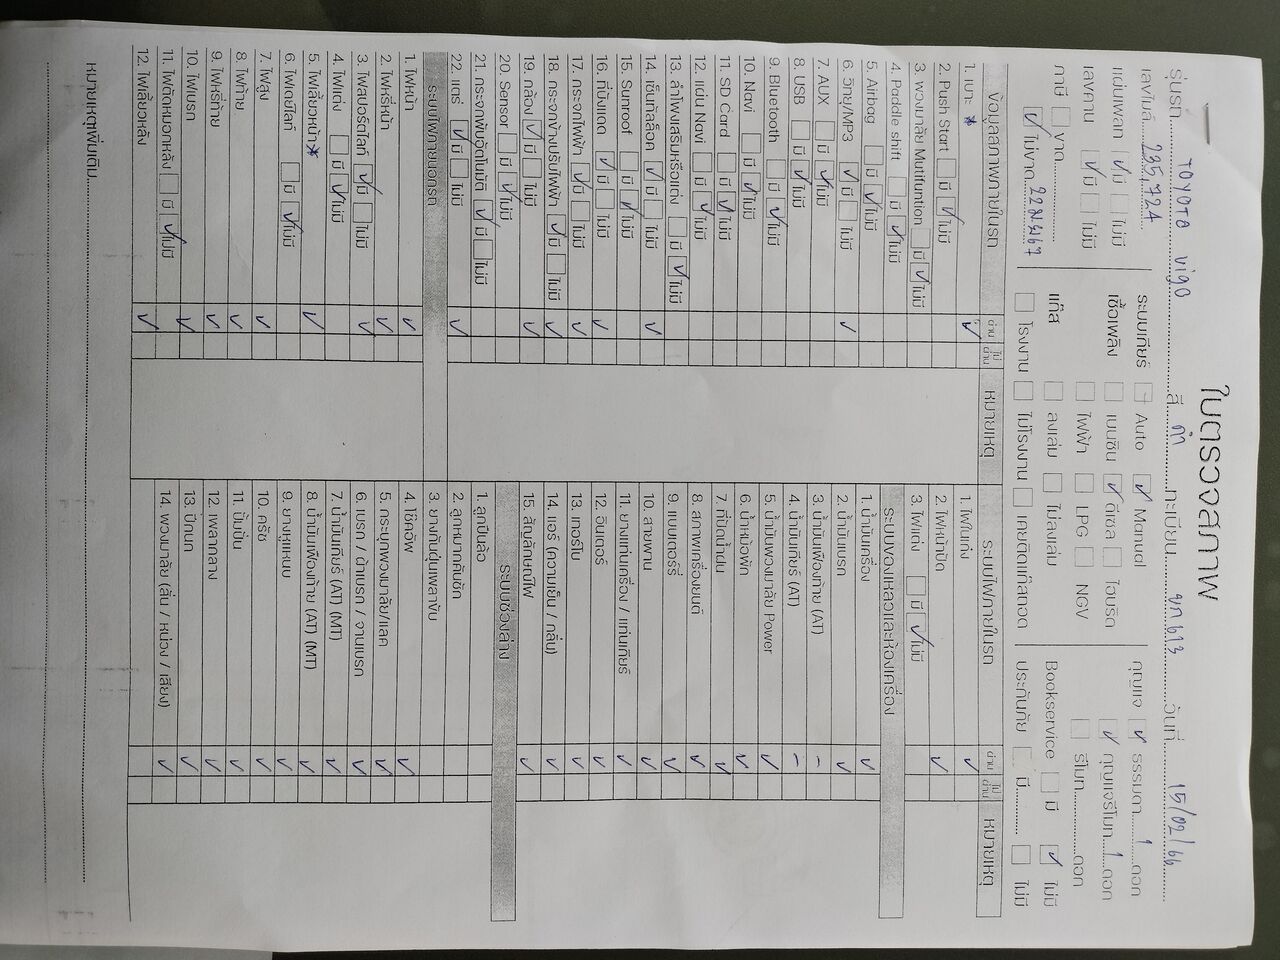 ใบตรวจสภาพ
รุ่นรถ TOYOTA vigo สี ดำ ทะเบียน วันที่ 15/02/66
เลขไมล์ 235,724 ระบบเกียร์ Auto ✓ Manual กุญแจ ✓ ธรรมดา 1 ดอก
แผ่นเพลท ✓ มี ไม่มี เชื้อเพลิง เบนซิน ✓ ดีเซล ไฮบริด ✓ กุญแจรีโมท 1 ดอก
เลขถาน ✓ มี ไม่มี ไฟฟ้า LPG NGV รีโมท ดอก
ภาษี ขาด แก๊ส ลงเล่ม ไม่ลงเล่ม Bookservice มี ✓ ไม่มี
✓ ไม่ขาด 22 มี.ค. 67 โรงงาน ไม่โรงงาน เคยติดแก๊สถอด ประกันภัย มี ไม่มี
ข้อมูลสภาพภายในรถ ผ่าน ไม่ผ่าน หมายเหตุ
1. เบาะ * ✓
2. Push Start มี ✓ ไม่มี
3. พวงมาลัย Mutifuntion มี ✓ ไม่มี
4. Paddle shift มี ✓ ไม่มี
5. Airbag มี ✓ ไม่มี
6. วิทยุ/MP3 ✓ มี ไม่มี ✓
7. AUX มี ✓ ไม่มี
8. USB มี ✓ ไม่มี
9. Bluetooth มี ✓ ไม่มี
10. Navi มี ✓ ไม่มี
11. SD Card มี ✓ ไม่มี
12. แผ่น Navi มี ✓ ไม่มี
13. ลำโพงเสริมหรือแต่ง มี ✓ ไม่มี
14. เซ็นทัลล็อค ✓ มี ไม่มี ✓
15. Sunroof มี ✓ ไม่มี
16. ที่บังแดด ✓ มี ไม่มี ✓
17. กระจกไฟฟ้า ✓ มี ไม่มี ✓
18. กระจกข้างปรับไฟฟ้า ✓ มี ไม่มี ✓
19. กล้อง ✓ มี ไม่มี ✓
20. Sensor มี ✓ ไม่มี
21. กระจกพับอัตโนมัติ ✓ มี ไม่มี
22. แตร ✓ มี ไม่มี ✓
ระบบไฟภายนอกรถ
1. ไฟหน้า ✓
2. ไฟหรี่หน้า ✓
3. ไฟสปอร์ตไลท์ ✓ มี ไม่มี ✓
4. ไฟแต่ง มี ✓ ไม่มี
5. ไฟเลี้ยวหน้า * ✓
6. ไฟเดย์ไลท์ มี ✓ ไม่มี
7. ไฟสูง ✓
8. ไฟท้าย ✓
9. ไฟหรี่ท้าย ✓
10. ไฟเบรก ✓
11. ไฟตัดหมอกหลัง มี ✓ ไม่มี
12. ไฟเลี้ยวหลัง ✓
ระบบไฟภายในรถ ผ่าน ไม่ผ่าน หมายเหตุ
1. ไฟในเก๋ง ✓
2. ไฟหน้าปัด ✓
3. ไฟแต่ง มี ✓ ไม่มี
ระบบของเหลวและห้องเครื่อง
1. น้ำมันเครื่อง ✓
2. น้ำมันเบรก ✓
3. น้ำมันเฟืองท้าย (AT) -
4. น้ำมันเกียร์ (AT) -
5. น้ำมันพวงมาลัย Power ✓
6. น้ำหม้อพัก ✓
7. ที่ปัดน้ำฝน ✓
8. สภาพเครื่องยนต์ ✓
9. แบตเตอร์รี่ ✓
10. สายพาน ✓
11. ยางแท่นเครื่อง / แท่นเกียร์ ✓
12. อินเตอร์ ✓
13. เทอร์โบ ✓
14. แอร์ (ความเย็น / กลิ่น) ✓
15. สัญลักษณ์ไฟ ✓
ระบบช่วงล่าง
1. ลูกปืนล้อ
2. ลูกหมากคันชัก
3. ยางกันฝุ่นเพลาขับ
4. โช๊คอัพ ✓
5. กระบุกพวงมาลัย/แลค ✓
6. เบรก / ผ้าเบรก / จานเบรก ✓
7. น้ำมันเกียร์ (AT) (MT) ✓
8. น้ำมันเฟืองท้าย (AT) (MT) ✓
9. ยางหูแหนบ ✓
10. ครัช ✓
11. ปั๊มปั่น ✓
12. เพลากลาง ✓
13. ปีกนก ✓
14. พวงมาลัย (ลื่น / หน่วง / เสียง) ✓
หมายเหตุเพิ่มเติม